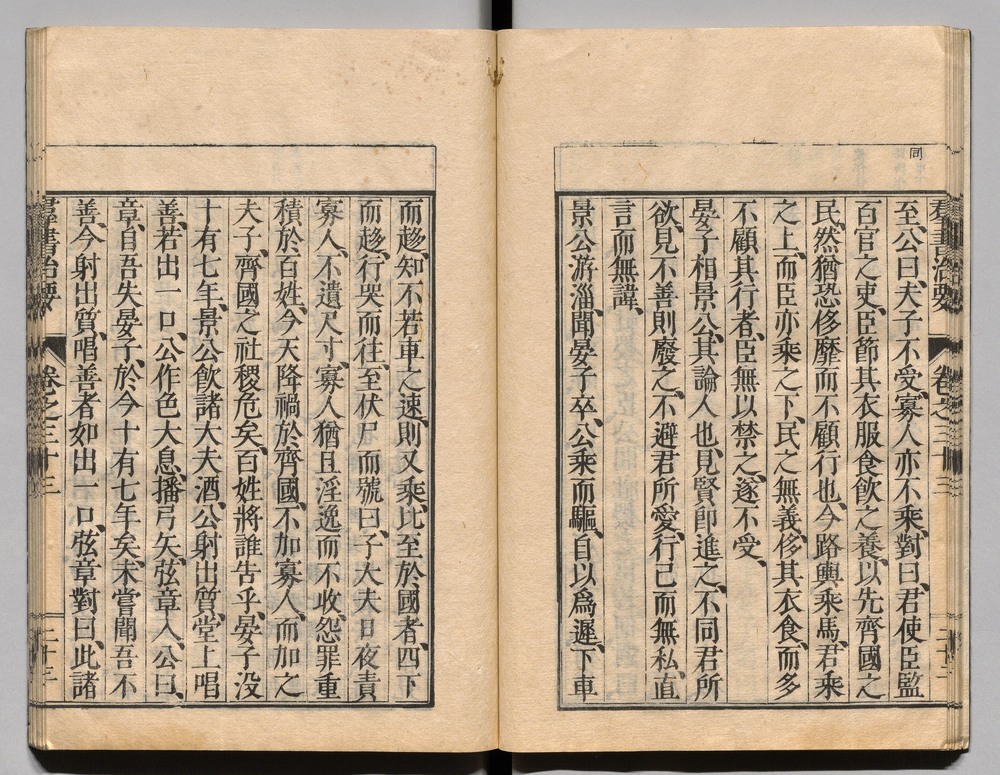 同
羣書治要 卷之三十三
至公曰、夫子不受、寡人亦不乘、對曰、君使臣監
百官之吏、臣節其衣服食飮之養、以先齊國之
民、然猶恐侈靡而不顧行也、今路輿乘馬、君乘
之上、而臣亦乘之下、民之無義、侈其衣食、而多
不顧其行者、臣無以禁之、遂不受、
晏子相景公、其論人也、見賢卽進之、不同君所
欲、見不善則廢之、不避君所愛、行己而無私、直
言而無諱、
景公游淄、聞晏子卒、公乘而驅、自以爲遲、下車
而趍、知不若車之速、則又乘、比至於國者、四下
而趍、行哭而往、至伏尸而號曰、子大夫日夜責
寡人、不遺尺寸、寡人猶且淫逸而不收、怨罪重
積於百姓、今天降禍於齊國、不加寡人、而加之
夫子、齊國之社稷危矣、百姓將誰告乎、晏子沒
十有七年、景公飮諸大夫酒、公射出質、堂上唱
善、若出一口、公作色大息、播弓矢、弦章入、公曰、
章、自吾失晏子、於今十有七年矣、未嘗聞吾不
善、今射出質、唱善者如出一口、弦章對曰、此諸
羣書治要 卷之三十三